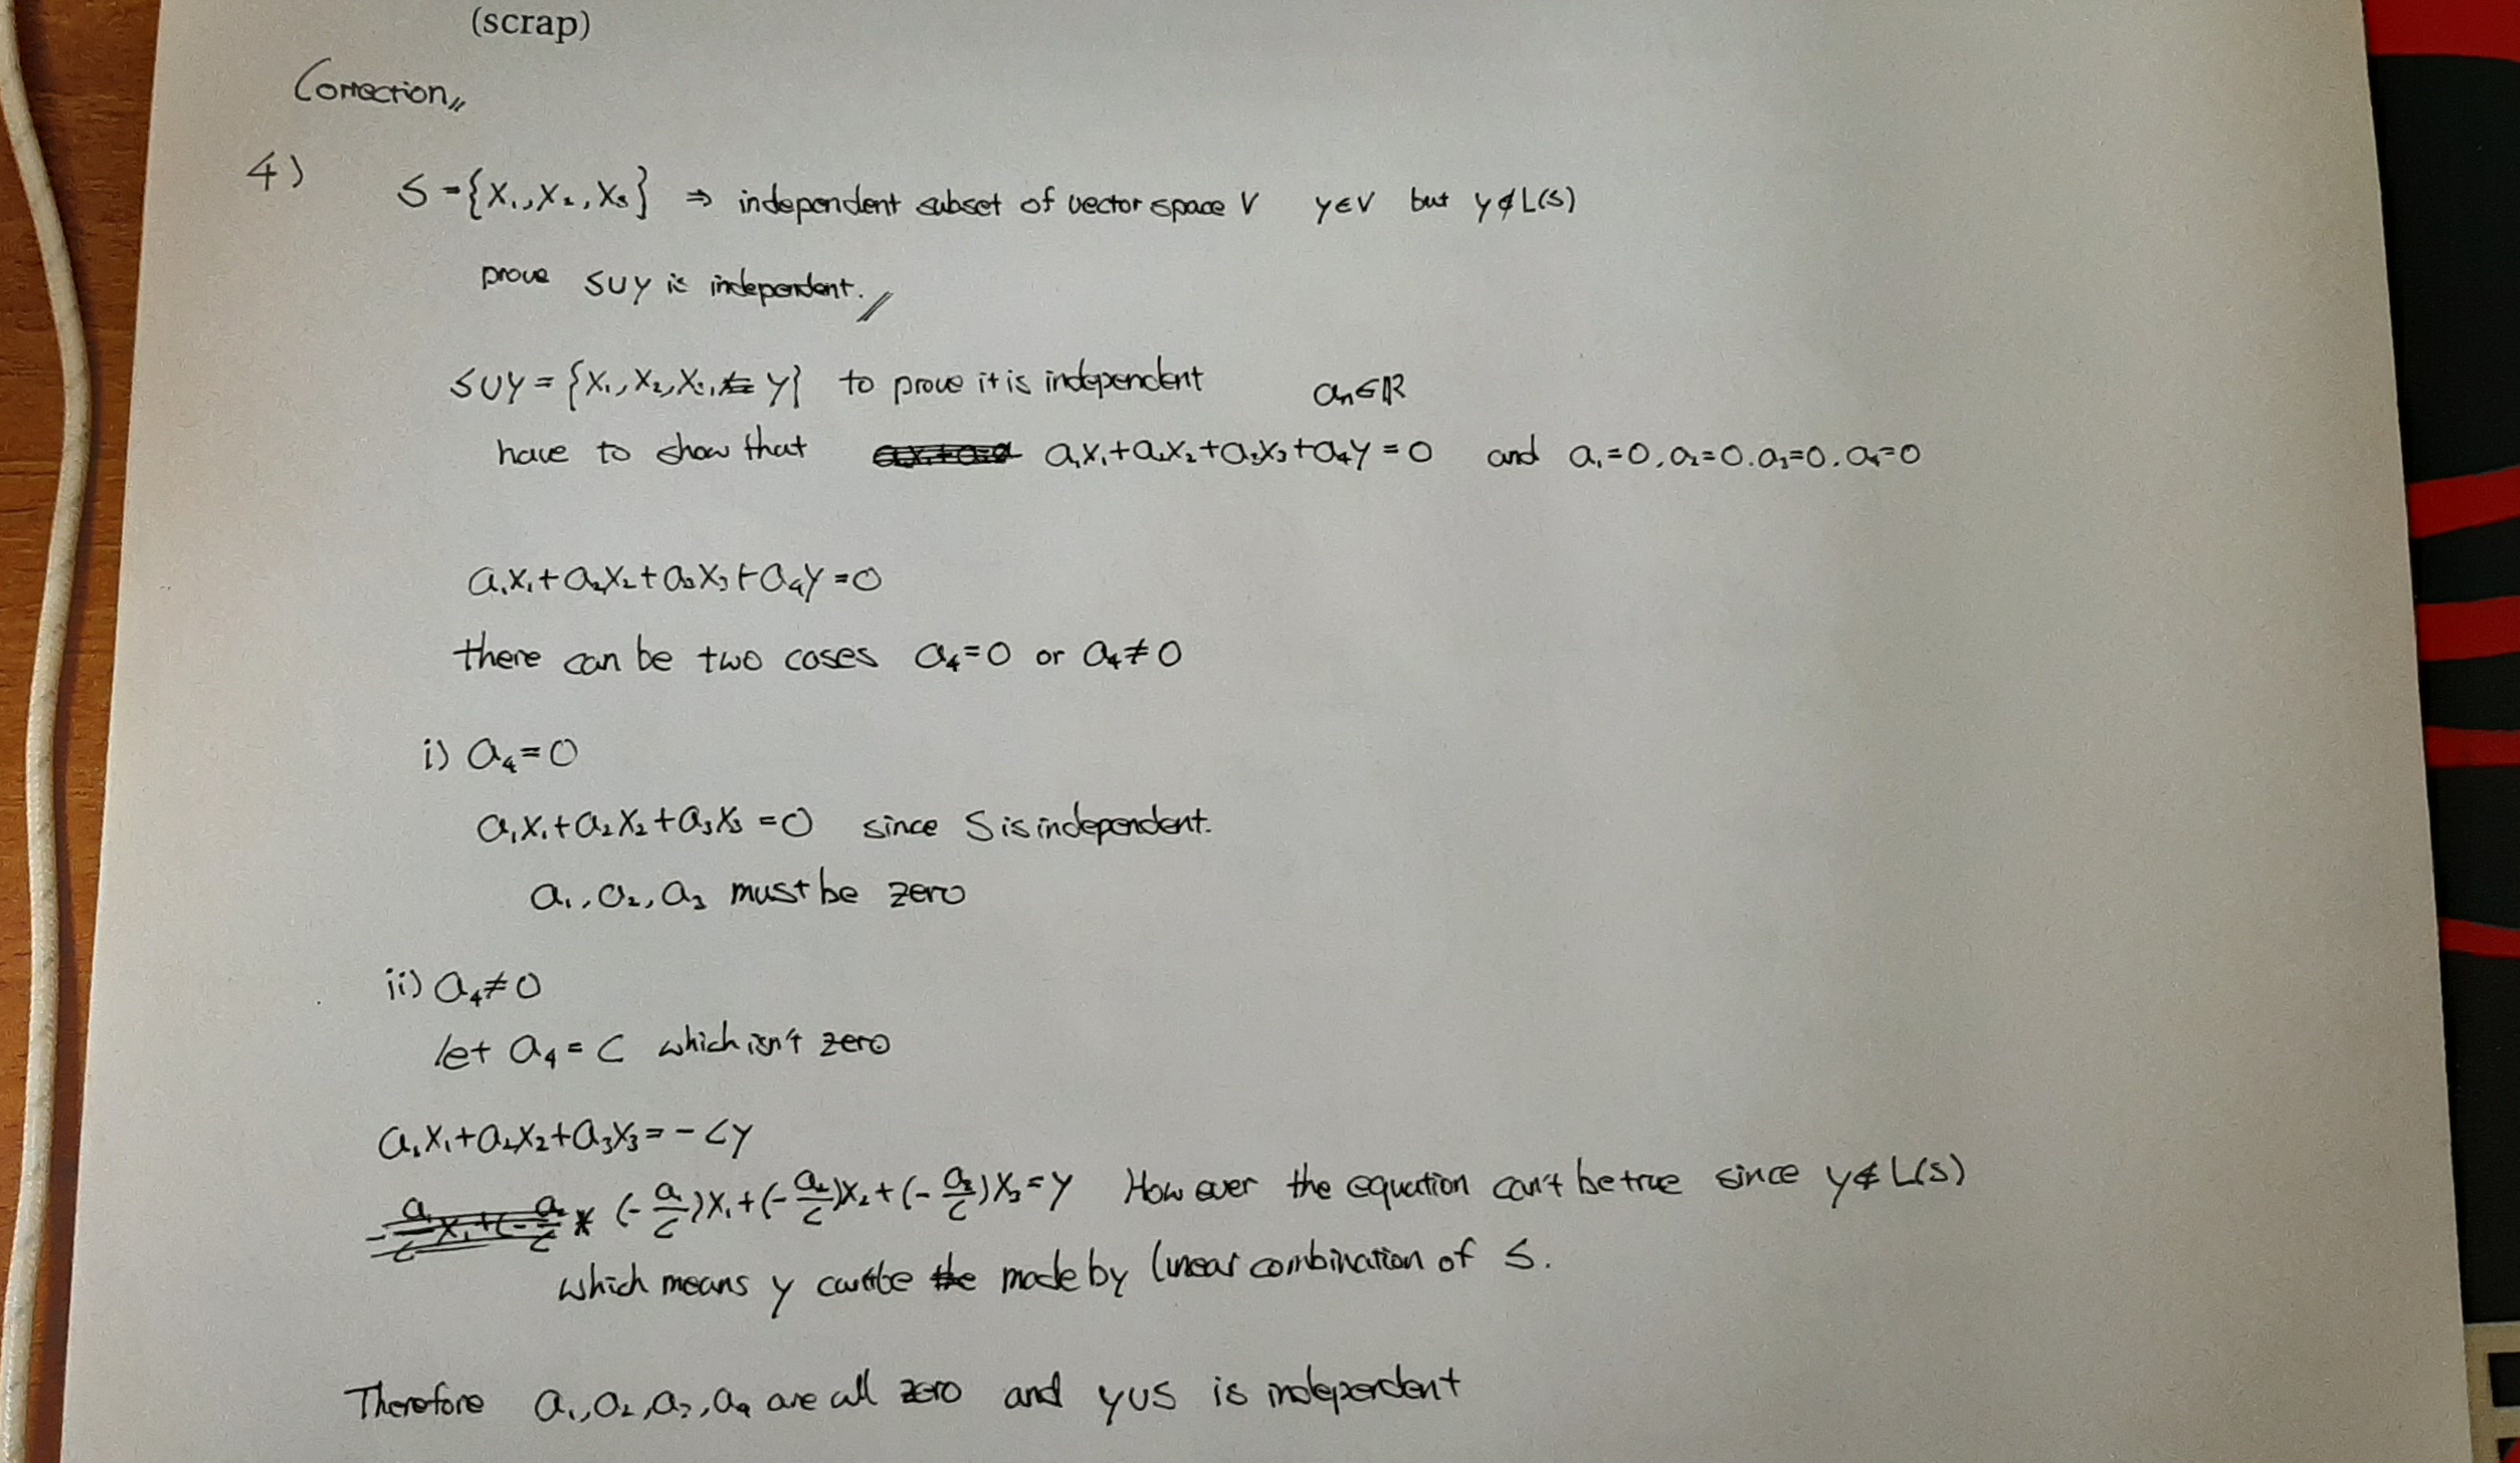 (scrap)
Correction,,
4) S = {x₁, x₂, x₃} ⇒ independent subset of vector space V y∈V but y∉L(S)
prove S∪y is independent.//
S∪y = {x₁, x₂, x₃, y} to prove it is independent aₙ∈ℝ
have to show that a₁x₁+a₂x₂+a₃x₃+a₄y=0 and a₁=0, a₂=0. a₃=0. a₄=0
a₁x₁+a₂x₂+a₃x₃+a₄y=0
there can be two cases a₄=0 or a₄≠0
i) a₄=0
a₁x₁+a₂x₂+a₃x₃=0 since S is independent.
a₁, a₂, a₃ must be zero
ii) a₄≠0
let a₄=c which isn't zero
a₁x₁+a₂x₂+a₃x₃=-cy
(-a₁/c)x₁+(-a₂/c)x₂+(-a₃/c)x₃=y However the equation can't be true since y∉L(S)
which means y can't be made by linear combination of S.
Therefore a₁, a₂, a₃, a₄ are all zero and y∪S is independent